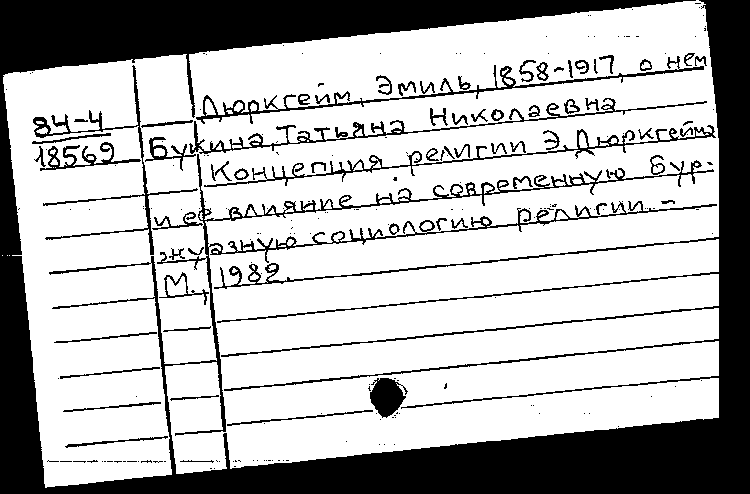 Дюркгейм, Эмиль, 1858-1917, о нем
84-4
18569
Букина, Татьяна Николаевна.
Концепция религии Э. Дюркгейма
и ее влияние на современную бур-
жуазную социологию религии. -
М., 1982.